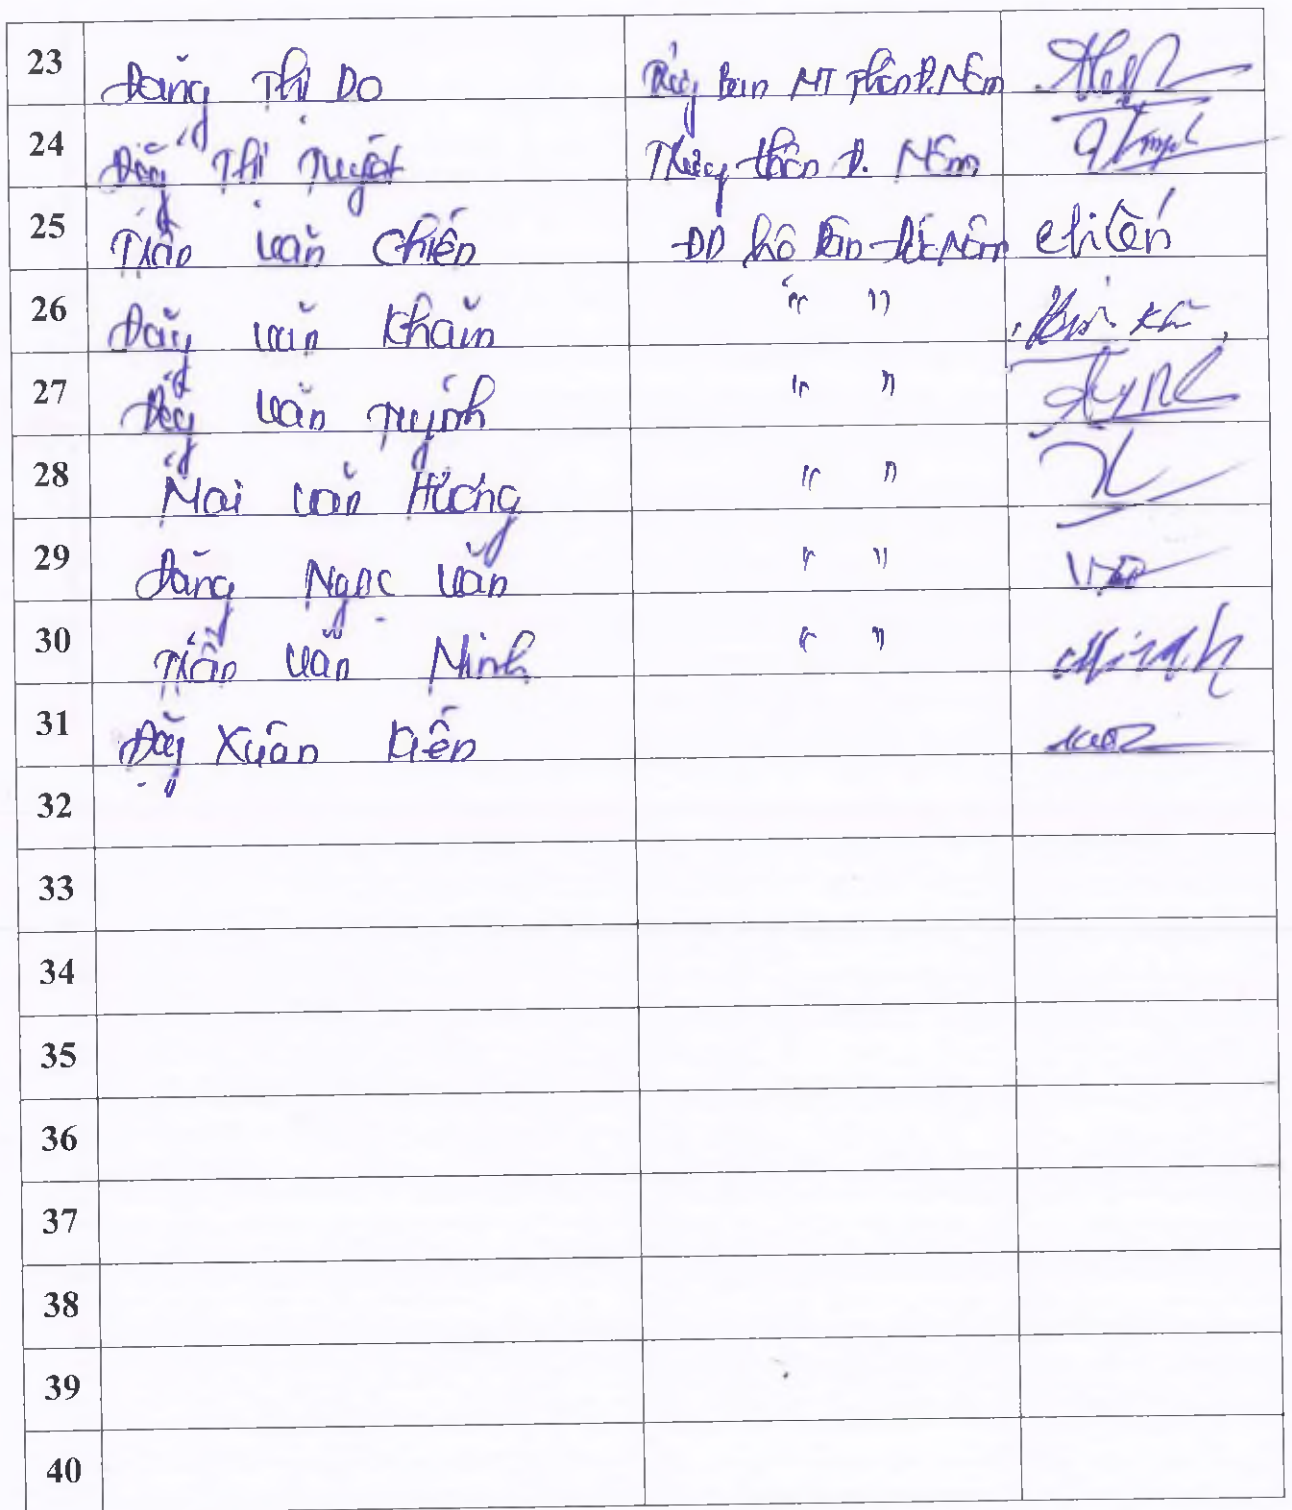 23 Đặng Thị Do Trưởng Ban MT thôn Đ. Nêm
24 Đặng Thị Nguyệt Trưởng thôn Đ. Nêm
25 Trần Văn Chiến ĐD hộ dân Nêm Chiến
26 Đặng Văn Khăm " "
27 Đặng Văn Huỳnh " "
28 Mai Văn Hương " "
29 Đặng Ngọc Văn " "
30 Trần Văn Minh " " Minh
31 Đặng Xuân Kiên
32
33
34
35
36
37
38
39
40